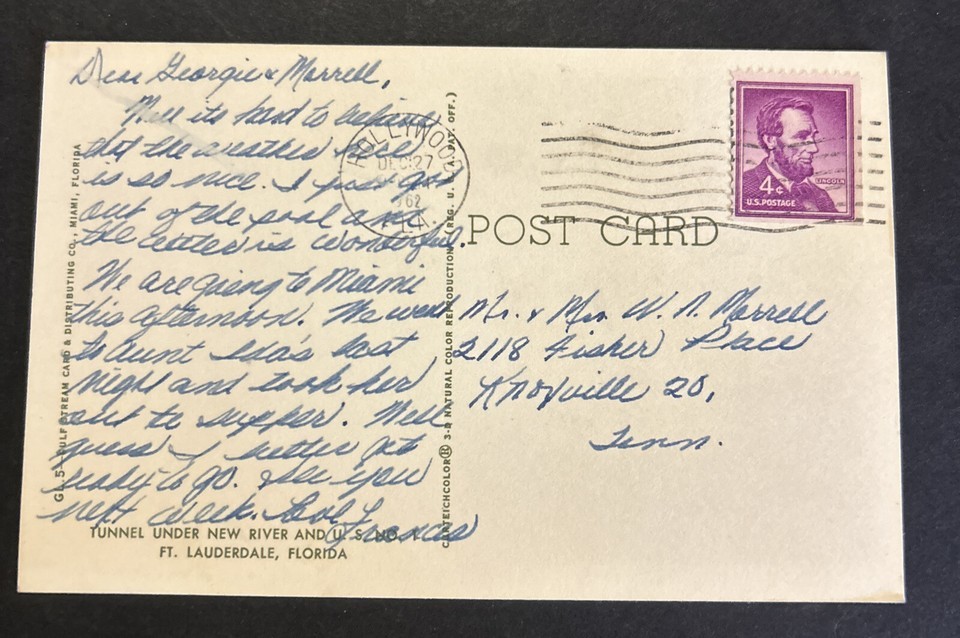 Dear Georgie & Morrell,
Well its hard to believe
that the weather here
is so nice. I just got
out of the pool and
the water is wonderful.
We are going to Miami
this afternoon. We went
to Aunt Ida's last
night and took her
out to supper. Well
guess I better get
ready to go. See you
next week. Love
Frances
TUNNEL UNDER NEW RIVER AND U.S. NO.
FT. LAUDERDALE, FLORIDA
GULF STREAM CARD & DISTRIBUTING CO., MIAMI, FLORIDA
CURTEICHCOLOR® 3-D NATURAL COLOR REPRODUCTION (REG. U.S.A. PAT. OFF.)
HOLLYWOOD
DEC 27
1962
FLA.
4¢
LINCOLN
U.S. POSTAGE
POST CARD
Mr. & Mrs. W. N. Morrell
2118 Fisher Place
Knoxville 20,
Tenn.